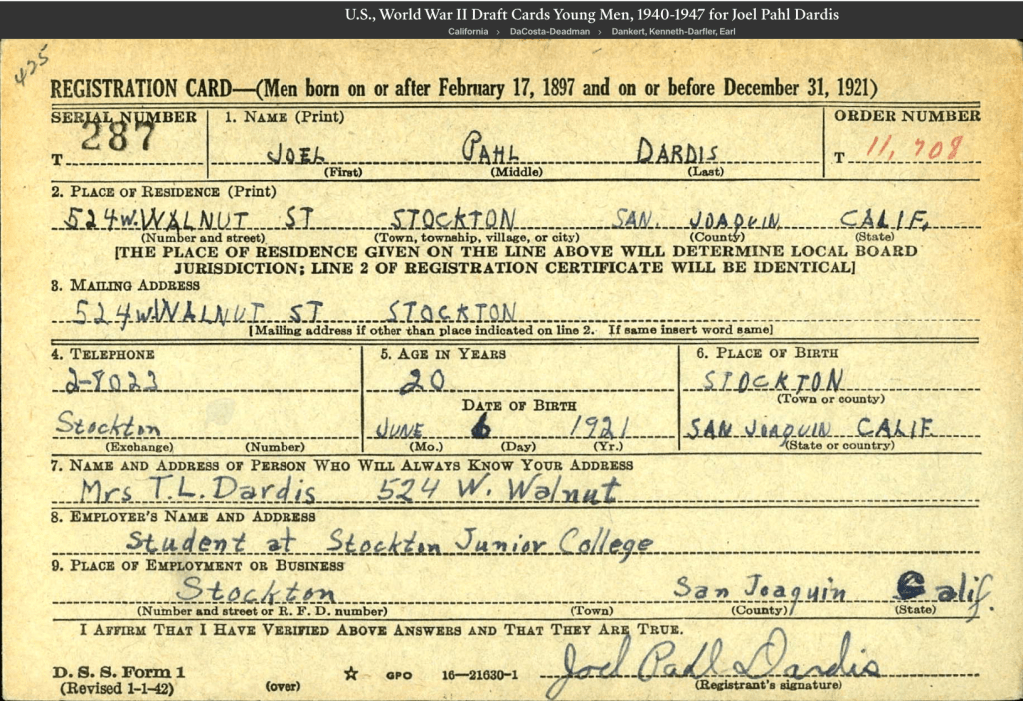 U.S., World War II Draft Cards Young Men, 1940-1947 for Joel Pahl Dardis
California > DaCosta-Deadman > Dankert, Kenneth-Darfler, Earl
425
REGISTRATION CARD—(Men born on or after February 17, 1897 and on or before December 31, 1921)
SERIAL NUMBER 1. NAME (Print) ORDER NUMBER
T 287 JOEL PAHL DARDIS T 11,708
(First) (Middle) (Last)
2. PLACE OF RESIDENCE (Print)
524 W. WALNUT ST STOCKTON SAN JOAQUIN CALIF.
(Number and street) (Town, township, village, or city) (County) (State)
[THE PLACE OF RESIDENCE GIVEN ON THE LINE ABOVE WILL DETERMINE LOCAL BOARD
JURISDICTION; LINE 2 OF REGISTRATION CERTIFICATE WILL BE IDENTICAL]
3. MAILING ADDRESS
524 W. WALNUT ST STOCKTON
[Mailing address if other than place indicated on line 2. If same insert word same]
4. TELEPHONE 5. AGE IN YEARS 6. PLACE OF BIRTH
2-8023 20 STOCKTON
DATE OF BIRTH (Town or county)
Stockton JUNE 6 1921 SAN JOAQUIN CALIF.
(Exchange) (Number) (Mo.) (Day) (Yr.) (State or country)
7. NAME AND ADDRESS OF PERSON WHO WILL ALWAYS KNOW YOUR ADDRESS
Mrs T.L. Dardis 524 W. Walnut
8. EMPLOYER'S NAME AND ADDRESS
Student at Stockton Junior College
9. PLACE OF EMPLOYMENT OR BUSINESS
Stockton San Joaquin Calif.
(Number and street or R. F. D. number) (Town) (County) (State)
I AFFIRM THAT I HAVE VERIFIED ABOVE ANSWERS AND THAT THEY ARE TRUE.
D. S. S. Form 1 GPO 16—21630-1 Joel Pahl Dardis
(Revised 1-1-42) (over) (Registrant's signature)